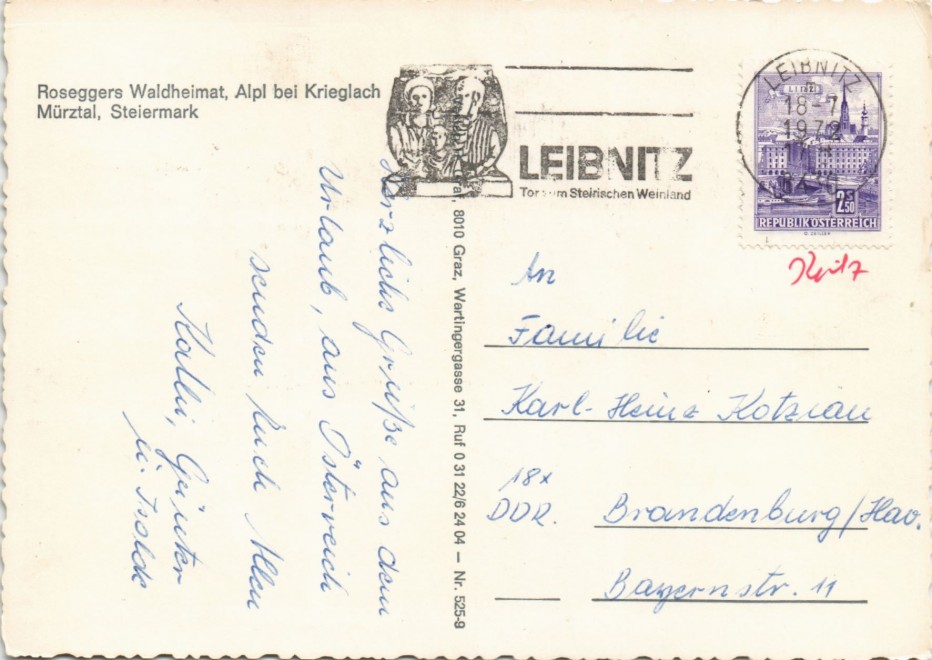 Roseggers Waldheimat, Alpl bei Krieglach
Mürztal, Steiermark
Herzliche Grüße aus dem
Urlaub, aus Österreich
senden Euch Allen
Kadli, Günter
u. Isolde
8010 Graz, Wartingergasse 31, Ruf 0 31 22/6 24 04 – Nr. 525-9
LEIBNITZ
Tor zum Steirischen Weinland
LEIBNITZ
18-7
1972
LINZ
2 S 50
REPUBLIK ÖSTERREICH
An
Familie
Karl-Heinz Kotzian
18x
DDR. Brandenburg/Hav.
Bayernstr. 11